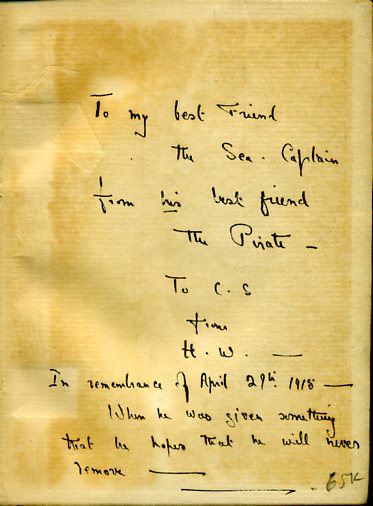 To my best Friend
the Sea-Captain
from his best friend
The Pirate —
To C.S
from
H.W. —
In remembrance of April 29th. 1915 —
When he was given something
that he hopes that he will never
remove —
65K